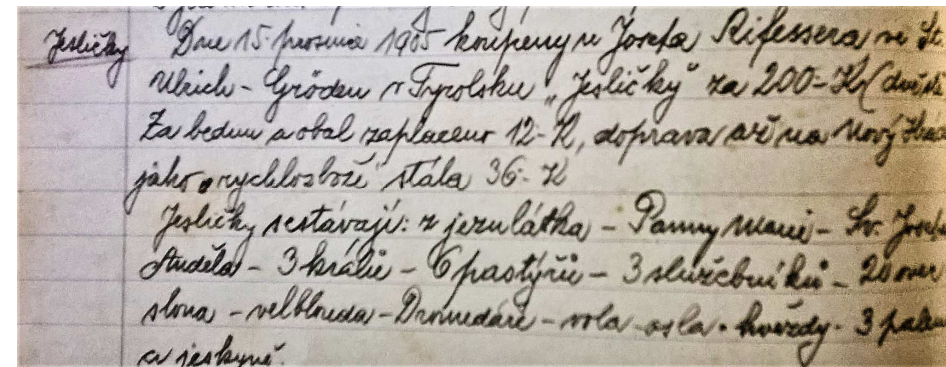 Jesličky Dne 15. prosince 1905 koupeny u Josefa Rifessera ve St
Ulrich - Gröden v Tyrolsku „Jesličky" za 200 - K (dvěstě
Za bednu a obal zaplaceno 12 - K, doprava až na Nový
jako „rychlozboží" stála 36 - K
Jesličky sestávají: z jezulátka - Panny Marie - Sv. Josefa
Anděla - 3 králů - 6 pastýřů - 3 služebníků - 20 ovec
slona - velblouda - Dromedáře - vola - osla - hvězdy - 3 palem
a jeskyně.